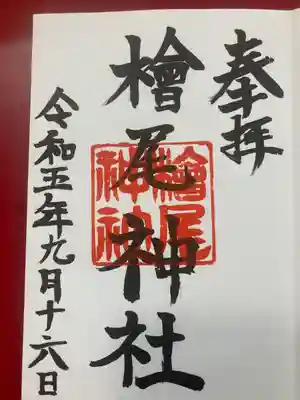 奉拝
檜尾神社
檜尾
神社
令和五年九月十六日